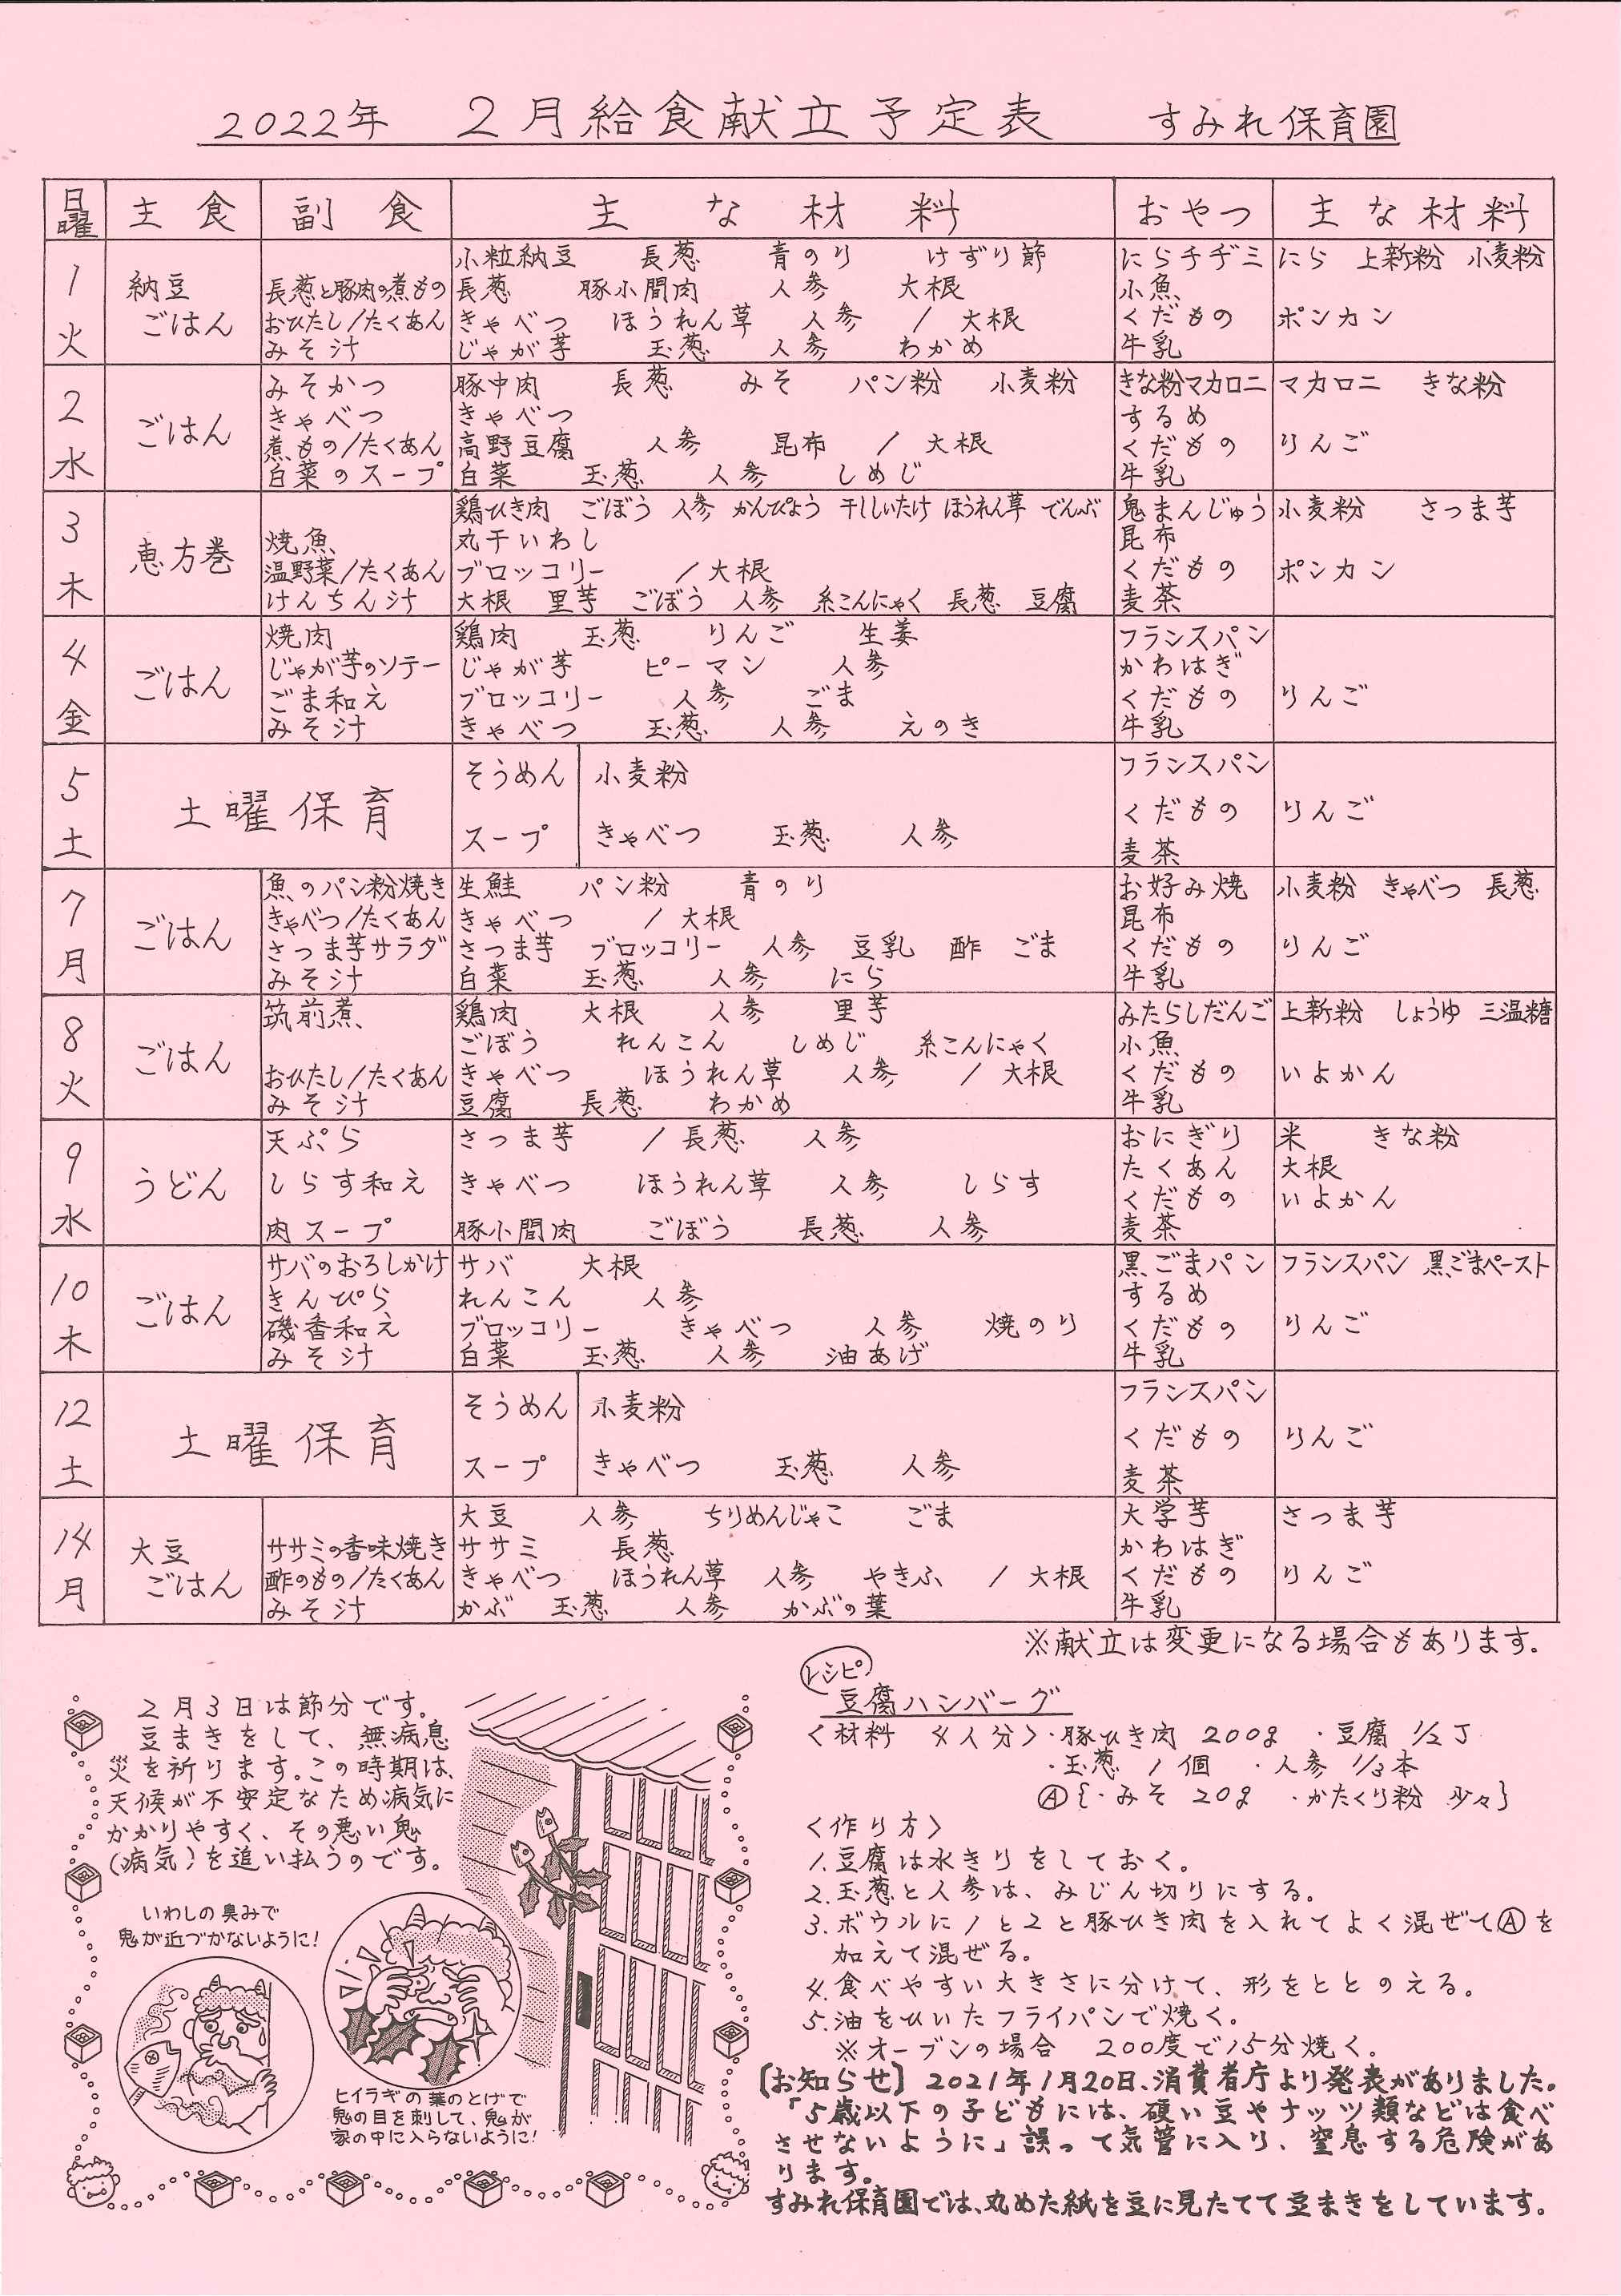 2022年 2月給食献立予定表 すみれ保育園
日曜 主食 副食 主な材料 おやつ 主な材料
1 火 納豆ごはん
小粒納豆 長葱 青のり けずり節 にらチヂミ にら 上新粉 小麦粉
長葱と豚肉の煮もの 長葱 豚小間肉 人参 大根 小魚
おひたし/たくあん きゃべつ ほうれん草 人参 / 大根 くだもの ポンカン
みそ汁 じゃが芋 玉葱 人参 わかめ 牛乳
2 水 ごはん
みそかつ 豚中肉 長葱 みそ パン粉 小麦粉 きな粉マカロニ マカロニ きな粉
きゃべつ きゃべつ するめ
煮もの/たくあん 高野豆腐 人参 昆布 / 大根 くだもの りんご
白菜のスープ 白菜 玉葱 人参 しめじ 牛乳
3 木 恵方巻
鶏ひき肉 ごぼう 人参 かんぴょう 干ししいたけ ほうれん草 でんぶ 鬼まんじゅう 小麦粉 さつま芋
焼魚 丸干いわし 昆布
温野菜/たくあん ブロッコリー / 大根 くだもの ポンカン
けんちん汁 大根 里芋 ごぼう 人参 糸こんにゃく 長葱 豆腐 麦茶
4 金 ごはん
焼肉 鶏肉 玉葱 りんご 生姜 フランスパン
じゃが芋のソテー じゃが芋 ピーマン 人参 かわはぎ
ごま和え ブロッコリー 人参 ごま くだもの りんご
みそ汁 きゃべつ 玉葱 人参 えのき 牛乳
5 土 土曜保育
そうめん 小麦粉 フランスパン
くだもの りんご
スープ きゃべつ 玉葱 人参
麦茶
7 月 ごはん
魚のパン粉焼き 生鮭 パン粉 青のり お好み焼 小麦粉 きゃべつ 長葱
きゃべつ/たくあん きゃべつ / 大根 昆布
さつま芋サラダ さつま芋 ブロッコリー 人参 豆乳 酢 ごま くだもの りんご
みそ汁 白菜 玉葱 人参 にら 牛乳
8 火 ごはん
筑前煮 鶏肉 大根 人参 里芋 みたらしだんご 上新粉 しょうゆ 三温糖
ごぼう れんこん しめじ 糸こんにゃく 小魚
おひたし/たくあん きゃべつ ほうれん草 人参 / 大根 くだもの いよかん
みそ汁 豆腐 長葱 わかめ 牛乳
9 水 うどん
天ぷら さつま芋 / 長葱 人参 おにぎり 米 きな粉
たくあん 大根
しらす和え きゃべつ ほうれん草 人参 しらす くだもの いよかん
肉スープ 豚小間肉 ごぼう 長葱 人参 麦茶
10 木 ごはん
サバのおろしかけ サバ 大根 黒ごまパン フランスパン 黒ごまペースト
きんぴら れんこん 人参 するめ
磯香和え ブロッコリー きゃべつ 人参 焼のり くだもの りんご
みそ汁 白菜 玉葱 人参 油あげ 牛乳
12 土 土曜保育
そうめん 小麦粉 フランスパン
くだもの りんご
スープ きゃべつ 玉葱 人参
麦茶
14 月 大豆ごはん
大豆 人参 ちりめんじゃこ ごま 大学芋 さつま芋
ササミの香味焼き ササミ 長葱 かわはぎ
酢のもの/たくあん きゃべつ ほうれん草 人参 やきふ / 大根 くだもの りんご
みそ汁 かぶ 玉葱 人参 かぶの葉 牛乳
※献立は変更になる場合もあります。
2月3日は節分です。
豆まきをして、無病息
災を祈ります。この時期は、
天候が不安定なため病気に
かかりやすく、その悪い鬼
(病気)を追い払うのです。
いわしの臭みで
鬼が近づかないように!
ヒイラギの葉のとげで
鬼の目を刺して、鬼が
家の中に入らないように!
レシピ
豆腐ハンバーグ
<材料 4人分>・豚ひき肉 200g ・豆腐 1/2丁
・玉葱 1個 ・人参 1/3本
Ⓐ{・みそ 20g ・かたくり粉 少々}
<作り方>
1.豆腐は水きりをしておく。
2.玉葱と人参は、みじん切りにする。
3.ボウルに1と2と豚ひき肉を入れてよく混ぜてⒶを
加えて混ぜる。
4.食べやすい大きさに分けて、形をととのえる。
5.油をひいたフライパンで焼く。
※オーブンの場合 200度で15分焼く。
〔お知らせ〕2021年1月20日、消費者庁より発表がありました。
「5歳以下の子どもには、硬い豆やナッツ類などは食べ
させないように」誤って気管に入り、窒息する危険があ
ります。
すみれ保育園では、丸めた紙を豆に見たてて豆まきをしています。